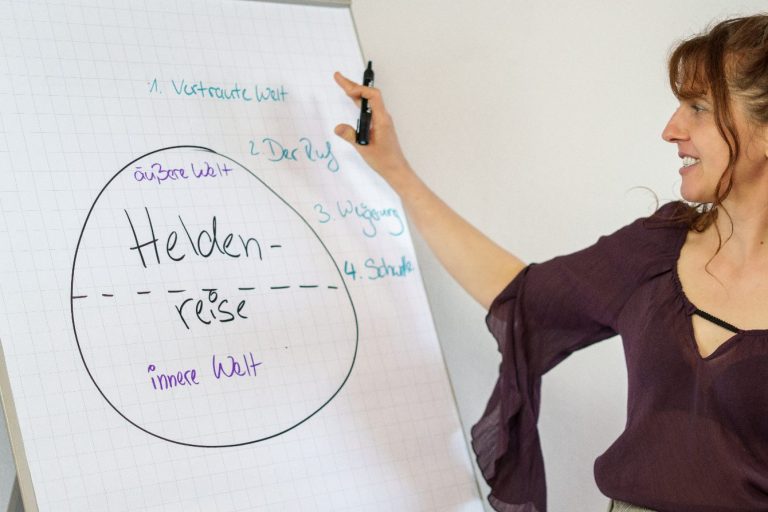 1. Vertraute Welt
2. Der Ruf
äußere Welt
3. Weigerung
Helden-
4.
reise
innere Welt